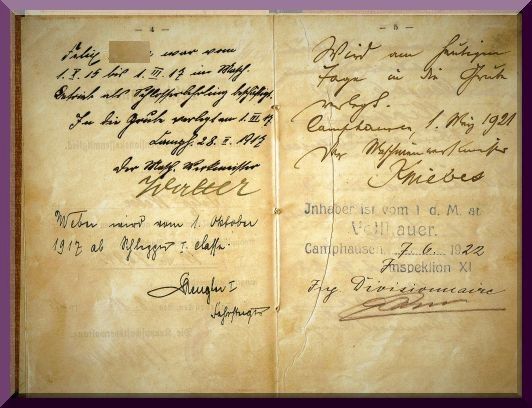 - 4 -
Felix war vom
1. X. 15 bis 1. III. 17 im Masch.
Betrieb als Schlosserlehrling beschäftigt.
In die Grube verlegt am 1. III. 17.
Camph. 28. II. 1917
Der Masch. Werkmeister
Walter
Weber wird vom 1. Oktober
1917 ab Schlepper I. Classe.
Fahrsteiger
- 5 -
Wird am heutigen
Tage in die Grube
verlegt.
Camphausen, 1. März 1921
Der Maschinenwerkmeister
Kniebes
Inhaber ist vom 1 d. M. ab
Vollhauer.
Camphausen, 7. 6. 1922
Inspektion XI
Ing. Divisionnaire